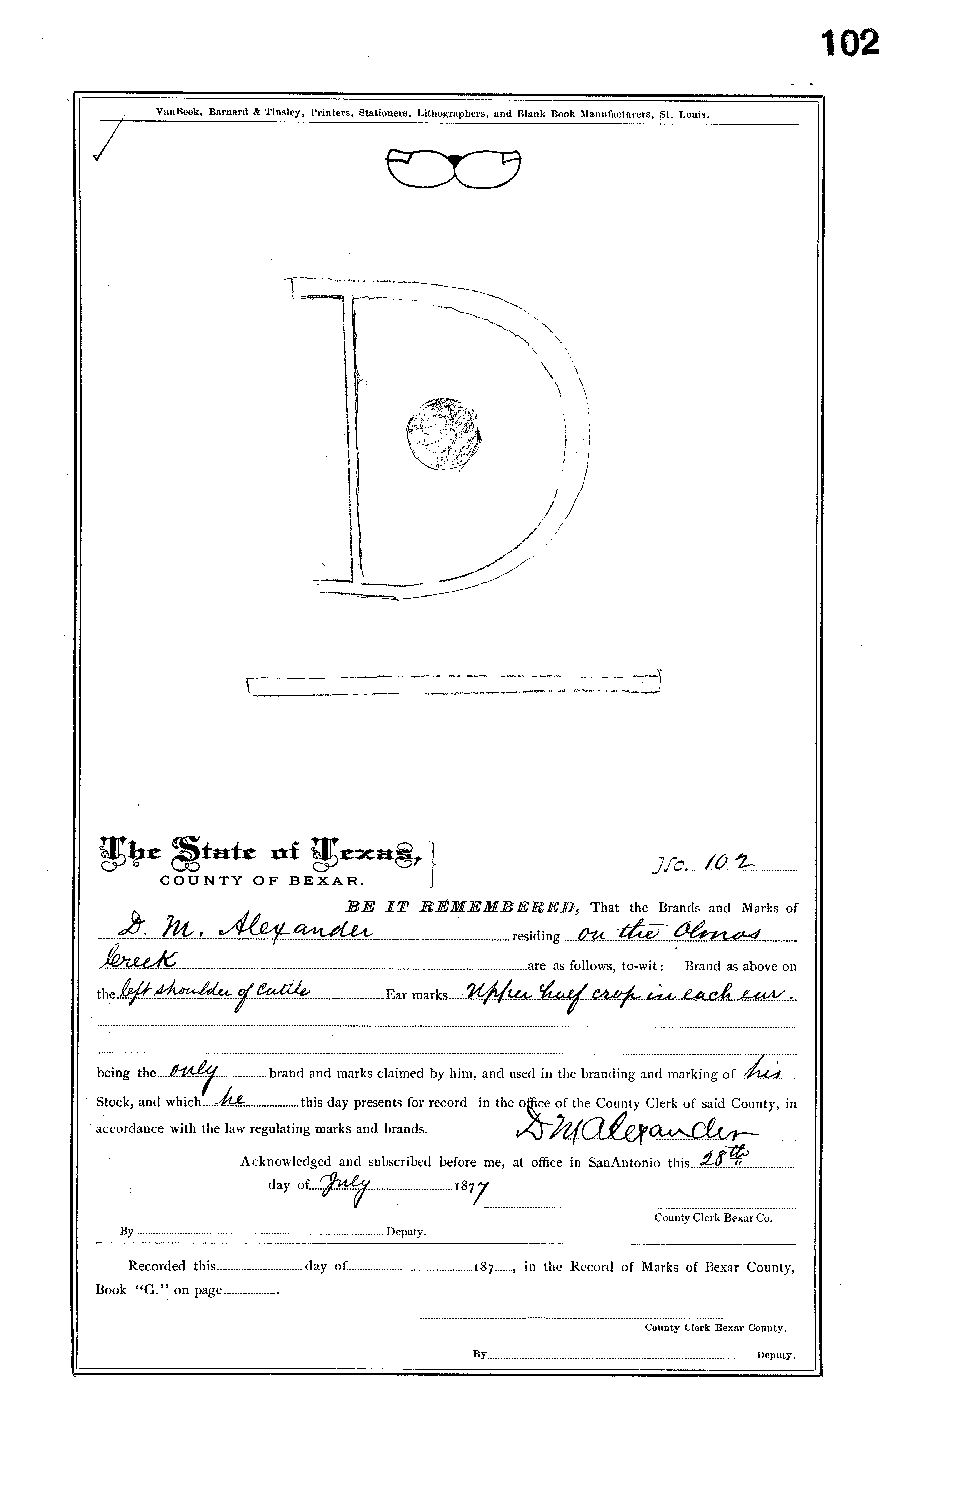 102
VanBeek, Barnard & Tinsley, Printers, Stationers, Lithographers, and Blank Book Manufacturers, St. Louis.
D
The State of Texas,
COUNTY OF BEXAR.
No. 102
BE IT REMEMBERED, That the Brands and Marks of
D. M. Alexander residing on the Olmos
Creek are as follows, to-wit: Brand as above on
the left shoulder of Cattle Ear marks Upper half crop in each ear.
being the only brand and marks claimed by him, and used in the branding and marking of his
Stock, and which he this day presents for record in the office of the County Clerk of said County, in
accordance with the law regulating marks and brands. D M Alexander
Acknowledged and subscribed before me, at office in SanAntonio this 28th
day of July 1877
County Clerk Bexar Co.
By Deputy.
Recorded this day of 187 , in the Record of Marks of Bexar County,
Book "G." on page .
County Clerk Bexar County.
By Deputy.